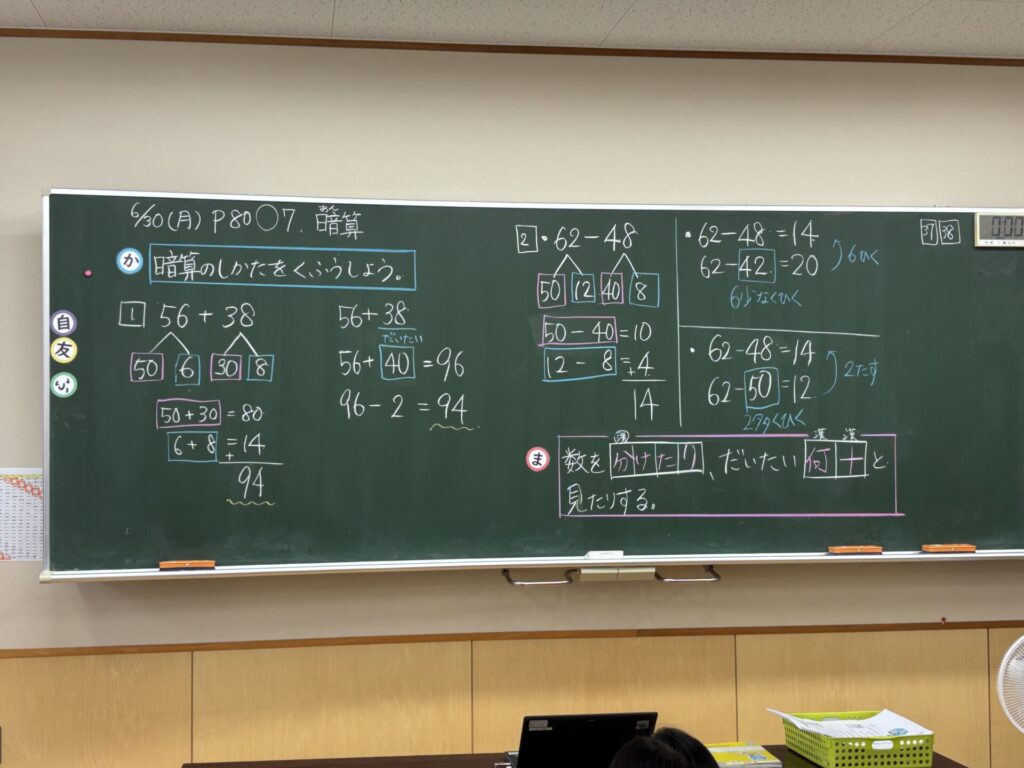 6/30(月) P80 ○7. 暗算
あん
か 暗算のしかたをくふうしよう。
自
友
1 56+38
50 6 30 8
50+30=80
6+8=14
+
94
56+38
だいたい
56+40=96
96-2=94
2 ・62-48
50 12 40 8
50-40=10
12-8=4
+
14
・62-48=14
62-42=20
6ひく
6少なくひく
・62-48=14
62-50=12
2たす
2多くひく
ま 数を分けたり、だいたい何十と
漢 漢 漢
見たりする。
37 38
0:00